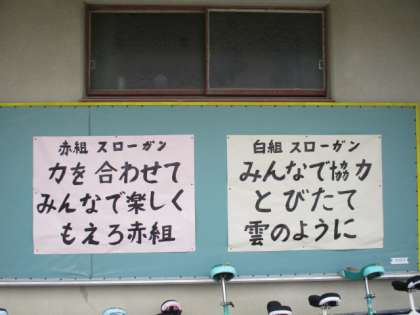 赤組 スローガン
力を合わせて
みんなで楽しく
もえろ赤組
白組 スローガン
みんなで協力
とびたて
雲のように